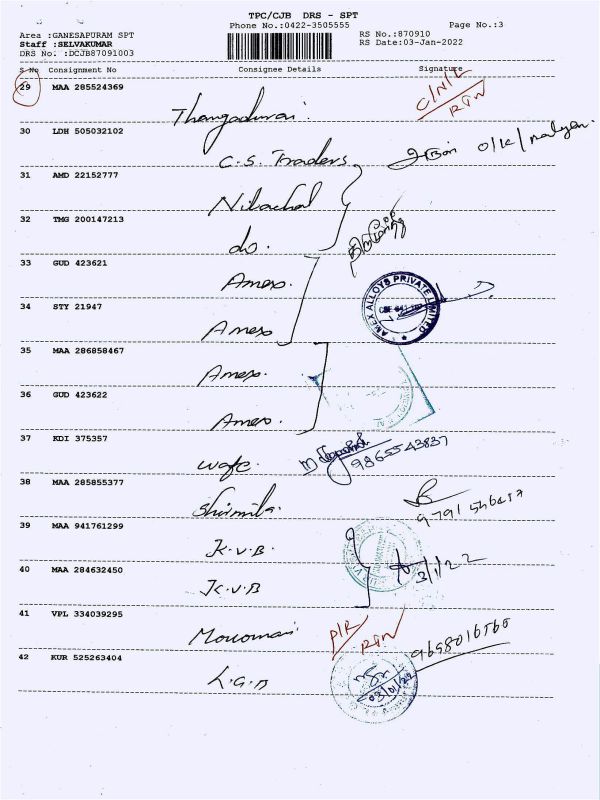 TPC/CJB DRS - SPT
Phone No.:0422-3505555
Page No.:3
Area :GANESAPURAM SPT
RS No.:870910
Staff :SELVAKUMAR
RS Date:03-Jan-2022
DRS No. :DCJB87091003
S No Consignment No Consignee Details Signature
29 MAA 285524369
Thangadurai. C/N/L
RTN
30 LDH 505032102
C.S. Traders
31 AMD 22152777
Nilachal
32 TMG 200147213
do.
33 GUD 423621
Amex.
ANEX ALLOYS PRIVATE LIMITED
34 STY 21947
Amex
35 MAA 286858467
Amex.
36 GUD 423622
Amex.
37 KDI 375357
9865543837
38 MAA 285855377
Shirmila.
39 MAA 941761299
K.V.B.
40 MAA 284632450
K.V.B
3/1/22
41 VPL 334039295
RTN
42 KUR 525263404
L.G.B
03/01/22